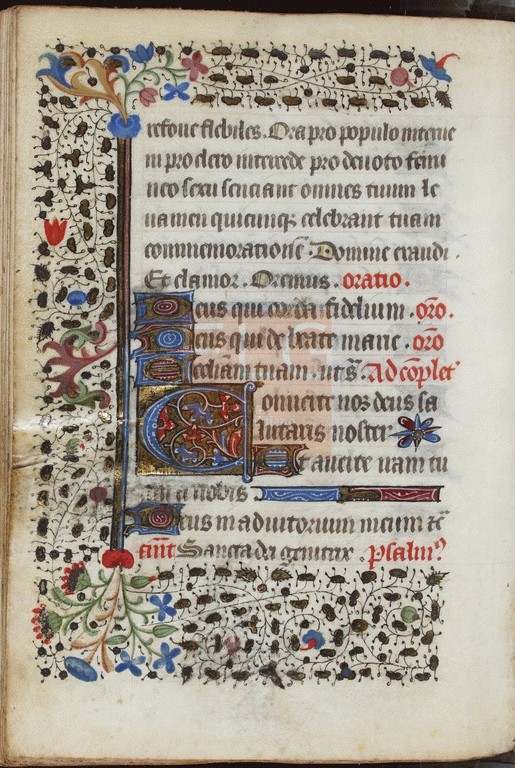 refove flebiles. Ora pro populo interve
ni pro clero intercede pro devoto femi
neo sexu senciant omnes tuum le
vamen quicunq celebrant tuam
commemoratione. Domine exaudi.
Et clamor. Oremus. oratio.
Deus qui corda fidelium. oro.
Deus qui de beate marie. oro
ecclīam tuam. ut s. Ad coplet
Convercte nos deus sa
lutaris noster
Et averte iram tu
am a nobis
Deus in adiutorium meum te
tint Sancta dei genitrix. psalm9